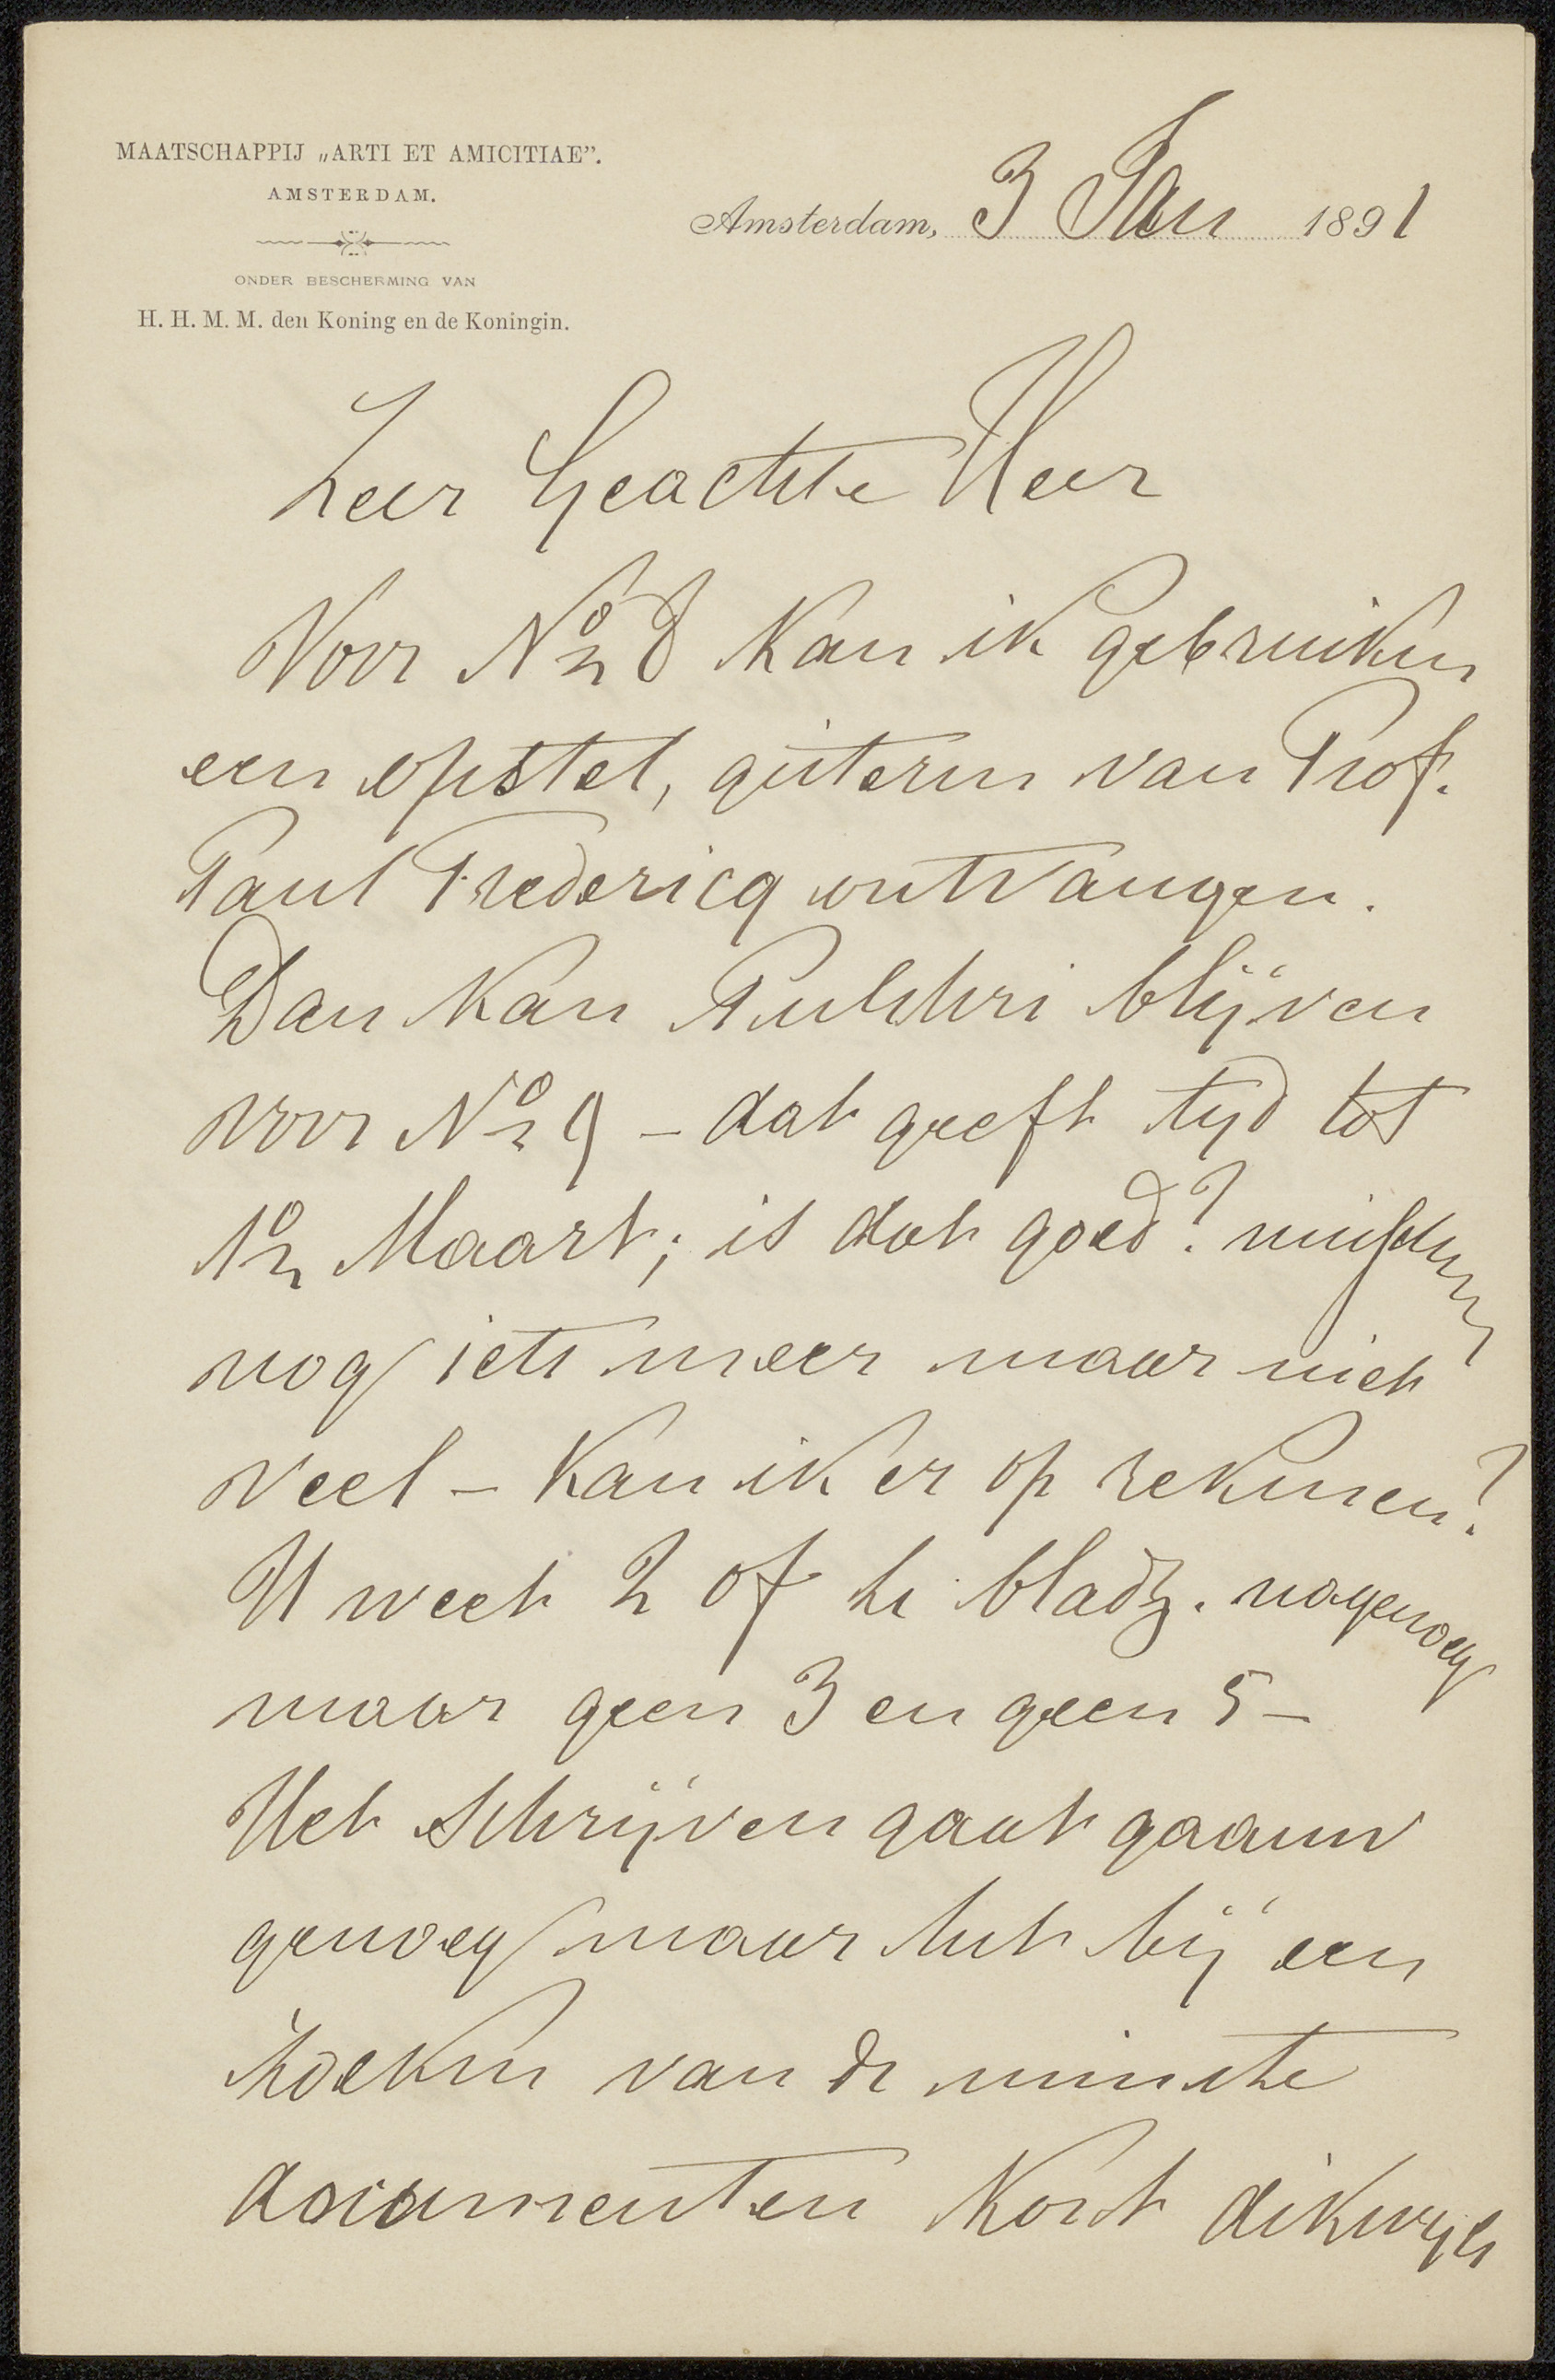 MAATSCHAPPIJ „ARTI ET AMICITIAE”.
AMSTERDAM.
ONDER BESCHERMING VAN
H. H. M. M. den Koning en de Koningin.
Amsterdam, 3 Jan 1891
Zeer Geachte Heer
Voor No 8 kan ik gebruiken
een opstel, gisteren van Prof.
Paul Fredericq ontvangen.
Dan kan Pulchri blijven
voor No 9 – dat geeft tyd tot
1o Maart; is dat goed? misschien
nog iets meer maar niet
veel – kan ik er op rekenen?
U weet 2 of 4 bladz. nagenoeg
maar geen 3 en geen 5 –
Het schrijven gaat gaauw
genoeg maar het bij een
zoeken van de minste
documenten kost dikwyls